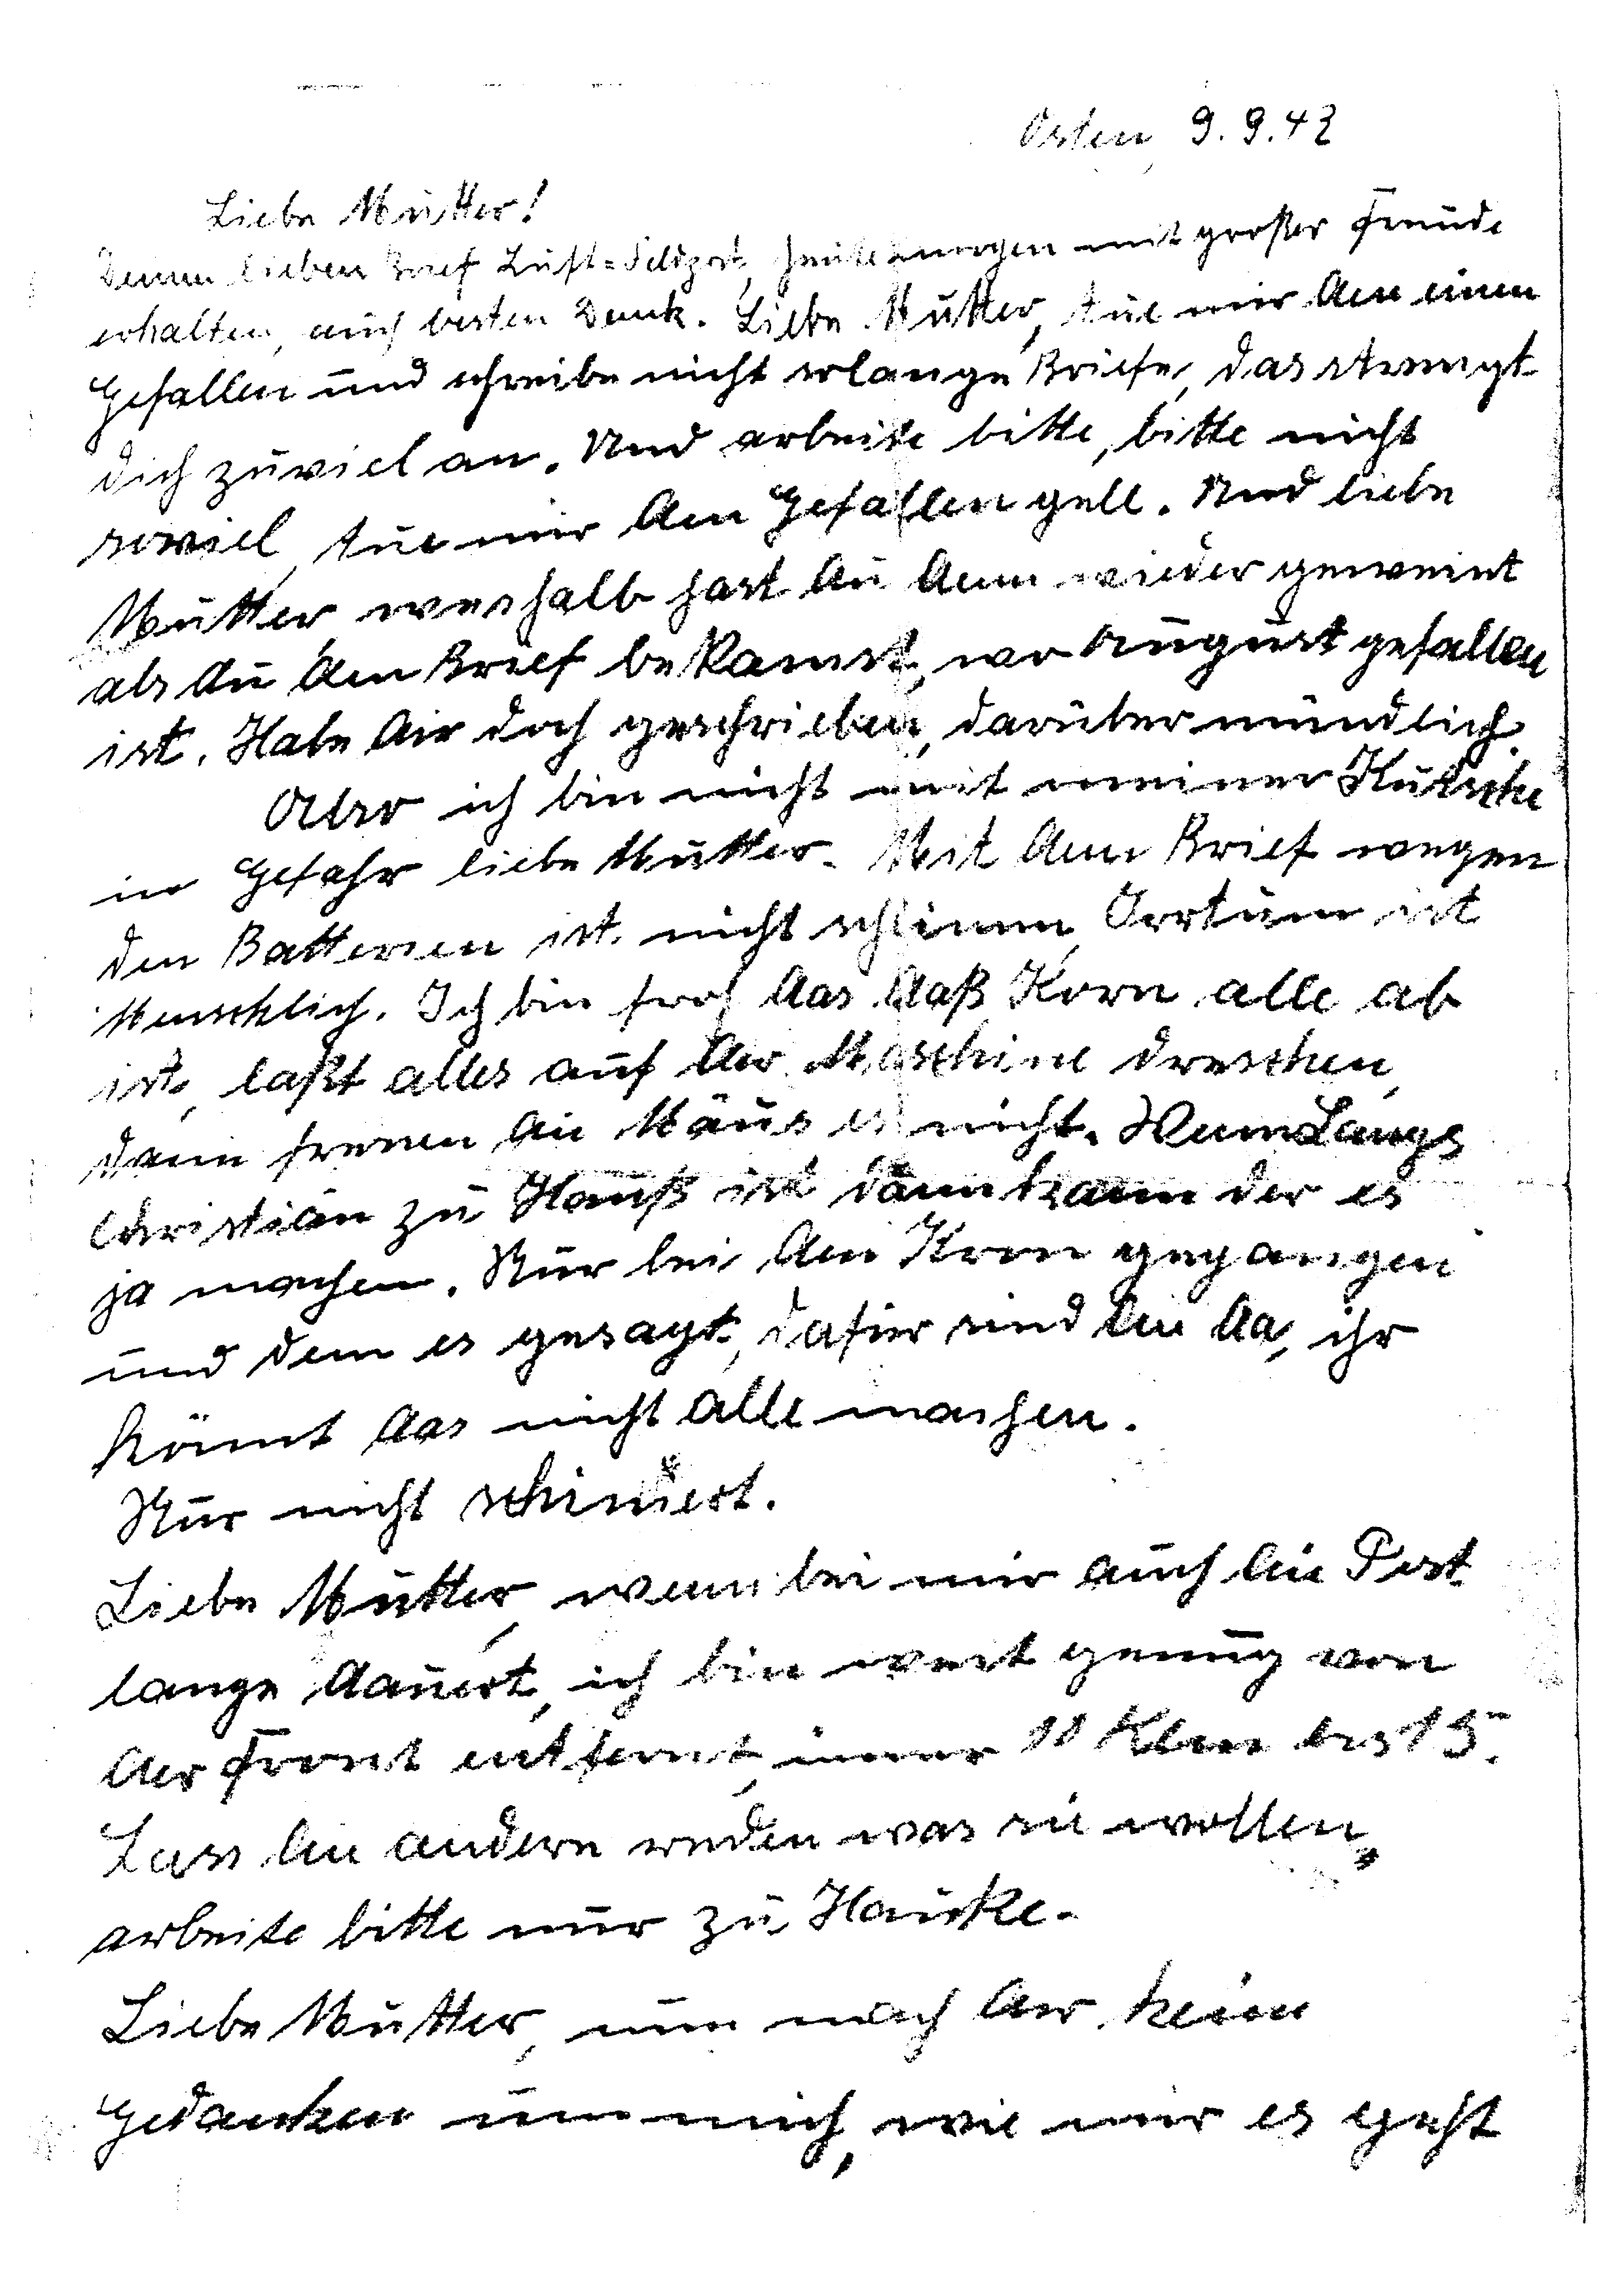 Osten, 9.9.42
Liebe Mutter!
Deinen lieben Brief Luft=Feldpost, heute morgen mit großer Freude
erhalten, auch besten Dank. Liebe Mutter, tue mir den einen
Gefallen und schreibe nicht solange Briefe, das strengt
dich zuviel an. Und arbeite bitte, bitte nicht
soviel, tue mir den Gefallen gell. Und liebe
Mutter weshalb hast du denn wieder geweint
als du den Brief bekamst, wo August gefallen
ist. Habe dir doch geschrieben, darüber mündlich.
Also ich bin nicht mit meiner Kutsche
in Gefahr liebe Mutter. Mit dem Brief wegen
den Batterien ist nicht schlimm, Irrtum ist
Menschlich. Ich bin froh das daß Korn alle ab
ist, laßt alles auf der Maschine dreschen,
dann fressen die Mäus es nicht. Wenn Langs
Christian zu Hauß ist dann kann der es
ja machen. Nur bei den Kron gegangen
und dem es gesagt, dafür sind die da, ihr
könnt das nicht alle machen.
Nur nicht schindert.
Liebe Mutter, wenn bei mir auch die Post
lange dauert, ich bin weit genug von
der Front entfernt, immer 10 Klm bis 15.
Lass die andern reden was sie wollen,
arbeite bitte nur zu Hauße.
Liebe Mutter, nun mach dir kein
Gedanken um mich, wie mir es geht